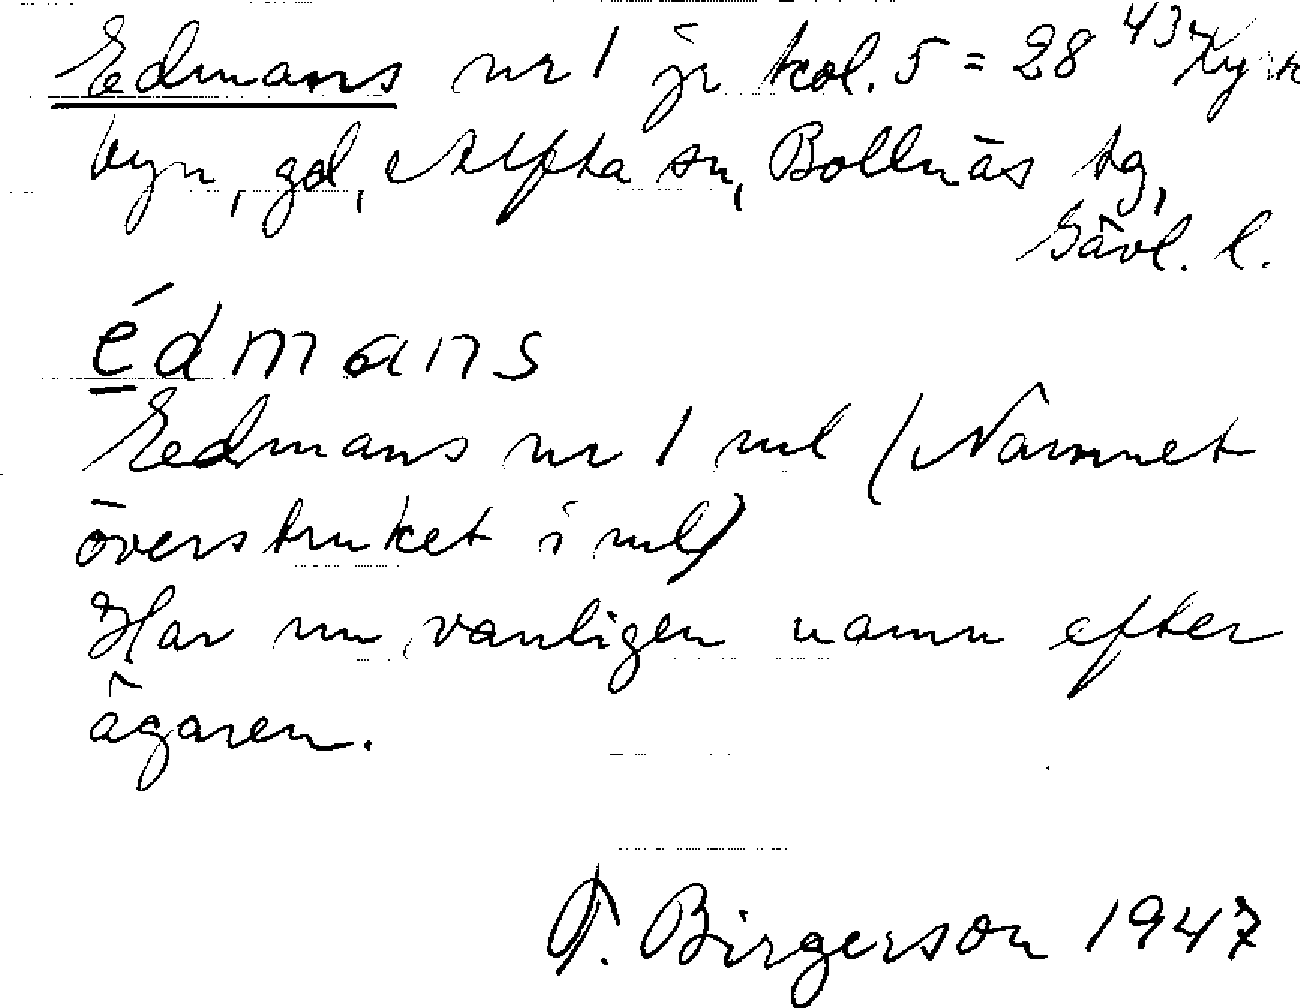 Edmans nr 1 jr kol. 5 = 28⁴³ Kyrk
byn, gd, Alfta sn, Bollnäs tg,
Gävl. l.
édmans
Edmans nr 1 ml (Namnet
överstruket i ml)
Har nu vanligen namn efter
ägaren.
T. Birgerson 1947